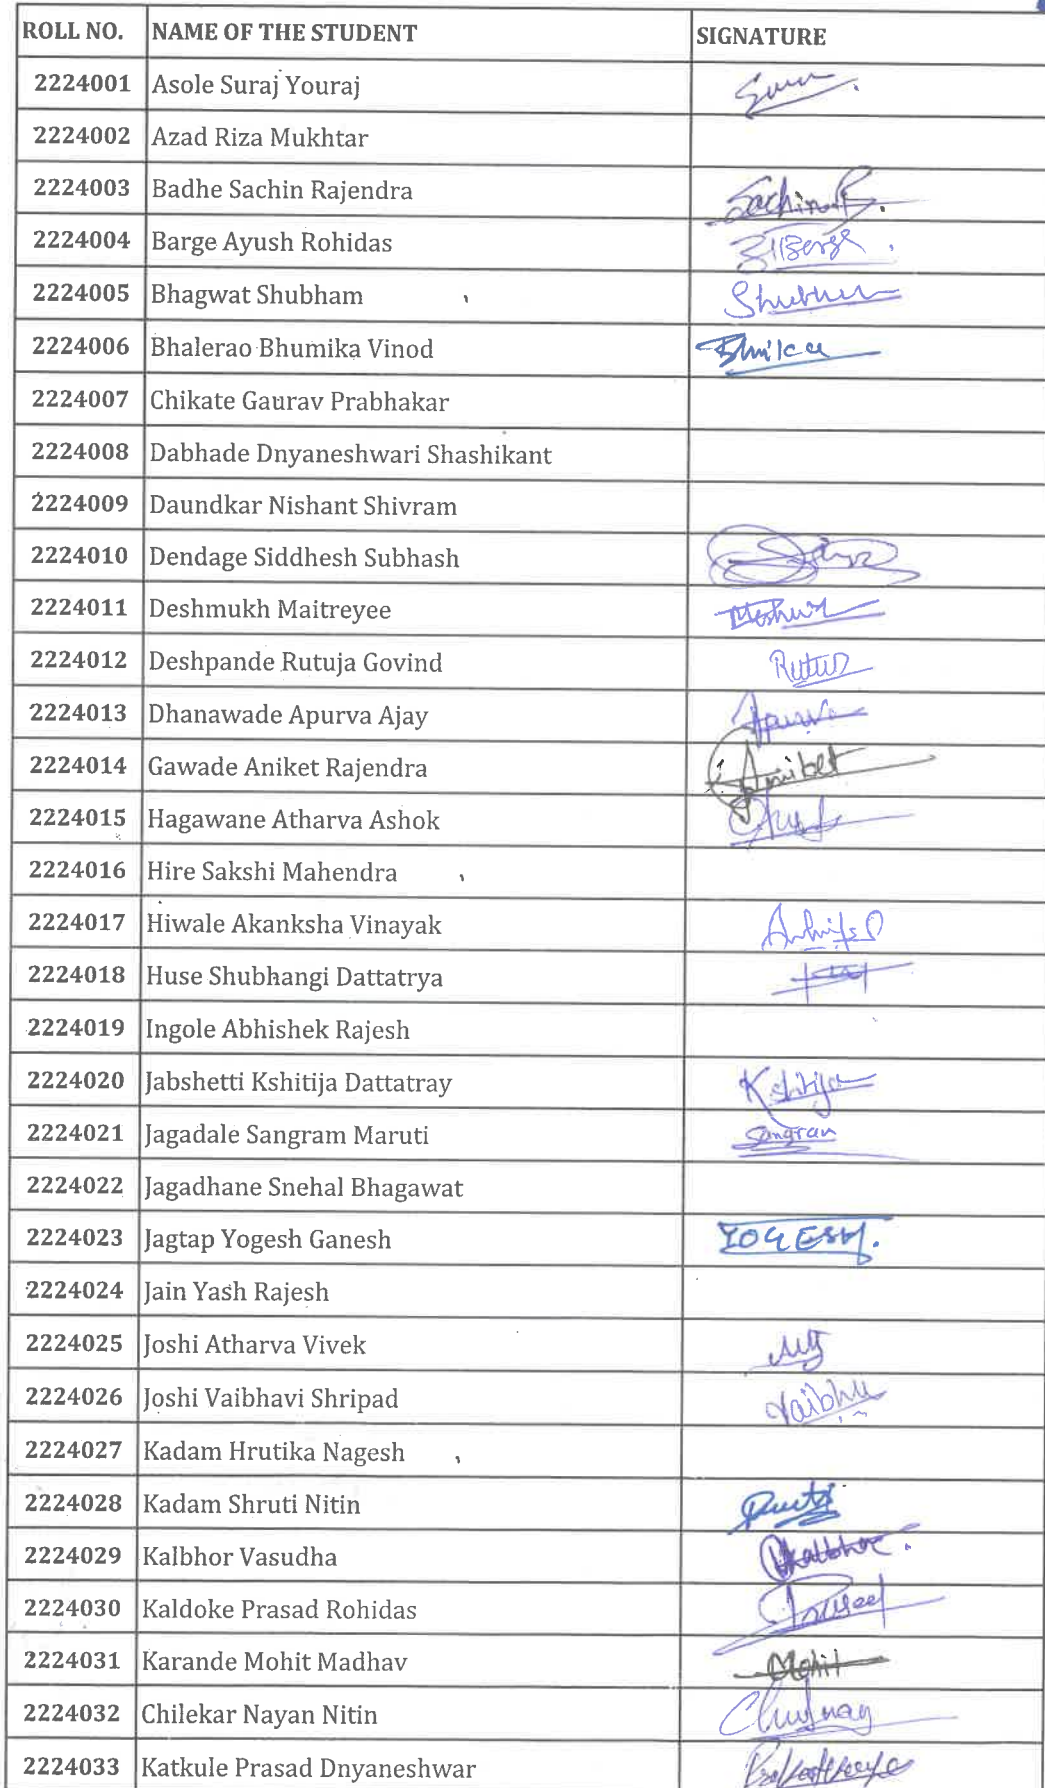 ROLL NO. NAME OF THE STUDENT SIGNATURE
2224001 Asole Suraj Youraj
2224002 Azad Riza Mukhtar
2224003 Badhe Sachin Rajendra Sachin
2224004 Barge Ayush Rohidas
2224005 Bhagwat Shubham
2224006 Bhalerao Bhumika Vinod
2224007 Chikate Gaurav Prabhakar
2224008 Dabhade Dnyaneshwari Shashikant
2224009 Daundkar Nishant Shivram
2224010 Dendage Siddhesh Subhash
2224011 Deshmukh Maitreyee
2224012 Deshpande Rutuja Govind
2224013 Dhanawade Apurva Ajay Apurva
2224014 Gawade Aniket Rajendra Aniket
2224015 Hagawane Atharva Ashok
2224016 Hire Sakshi Mahendra
2224017 Hiwale Akanksha Vinayak
2224018 Huse Shubhangi Dattatrya
2224019 Ingole Abhishek Rajesh
2224020 Jabshetti Kshitija Dattatray Kshitija
2224021 Jagadale Sangram Maruti
2224022 Jagadhane Snehal Bhagawat
2224023 Jagtap Yogesh Ganesh YOGESH.
2224024 Jain Yash Rajesh
2224025 Joshi Atharva Vivek
2224026 Joshi Vaibhavi Shripad
2224027 Kadam Hrutika Nagesh
2224028 Kadam Shruti Nitin
2224029 Kalbhor Vasudha
2224030 Kaldoke Prasad Rohidas
2224031 Karande Mohit Madhav Mohit
2224032 Chilekar Nayan Nitin
2224033 Katkule Prasad Dnyaneshwar